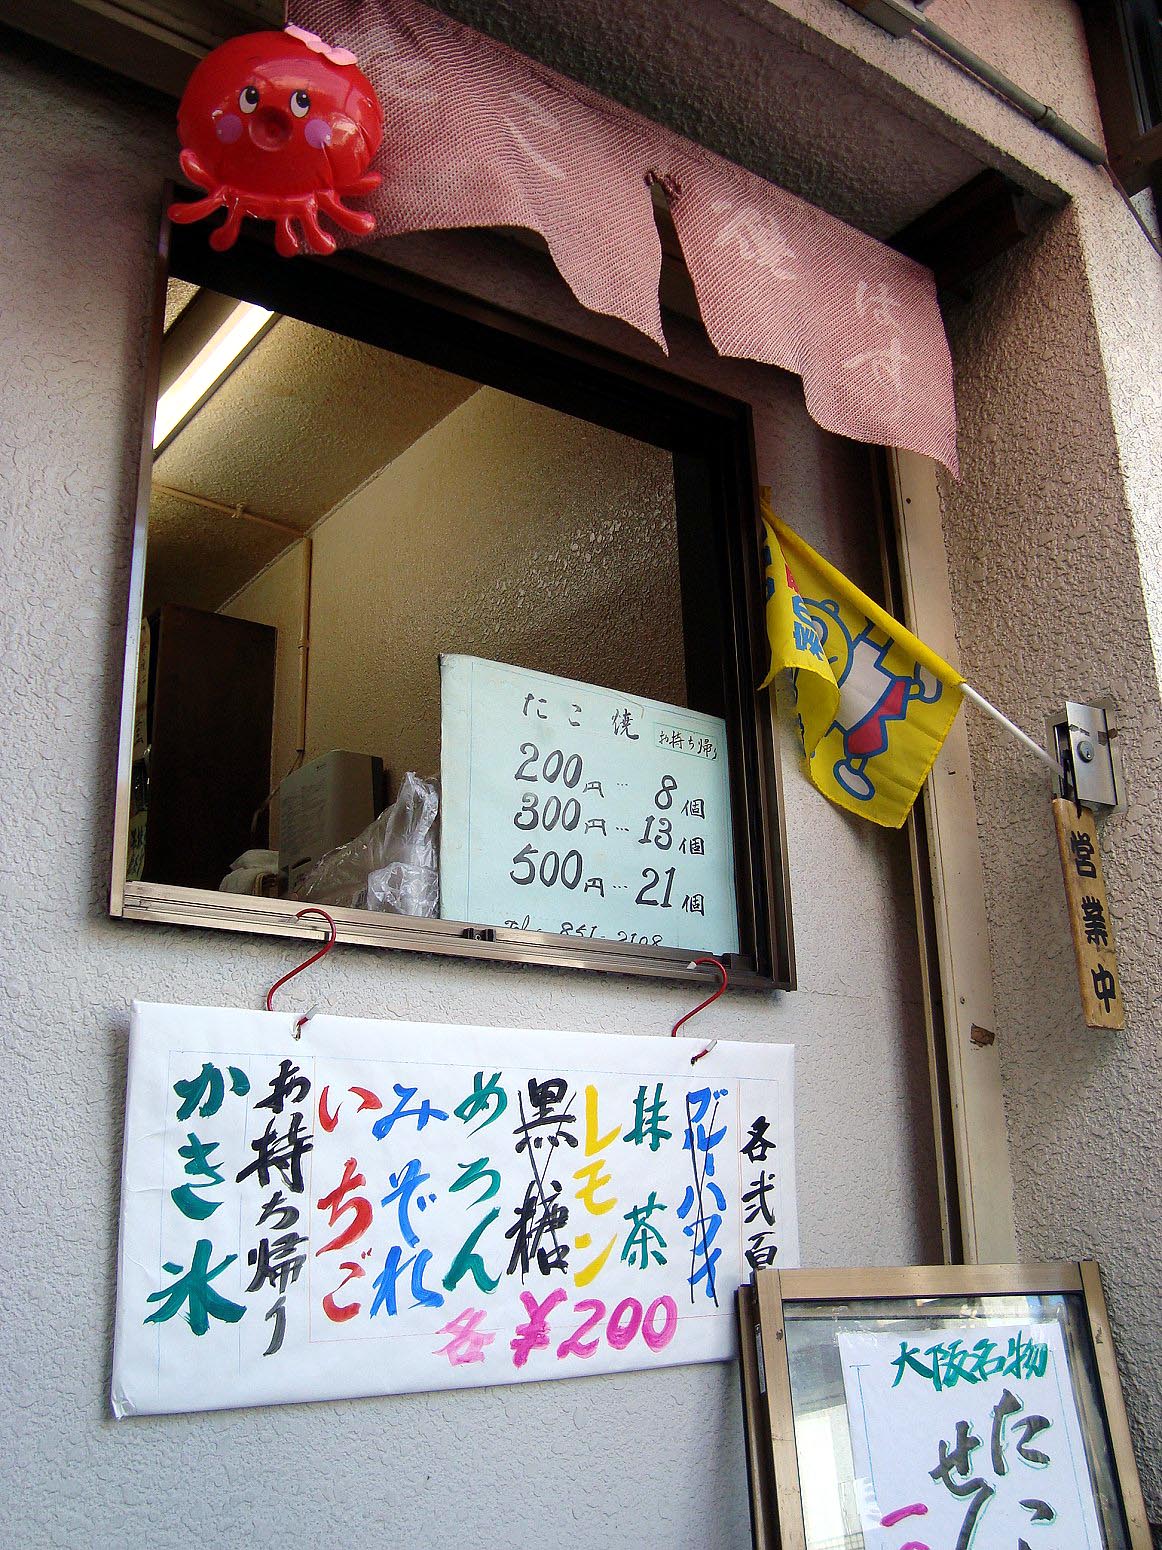 はす
たこ焼
お持ち帰り
200円…8個
300円…13個
500円…21個
Tel. 851-2108
営業中
各弐百
ブルーハワイ
抹茶
レモン
黒糖
めろん
みぞれ
いちご
お持ち帰り
かき氷
各¥200
大阪名物
たこ
せん